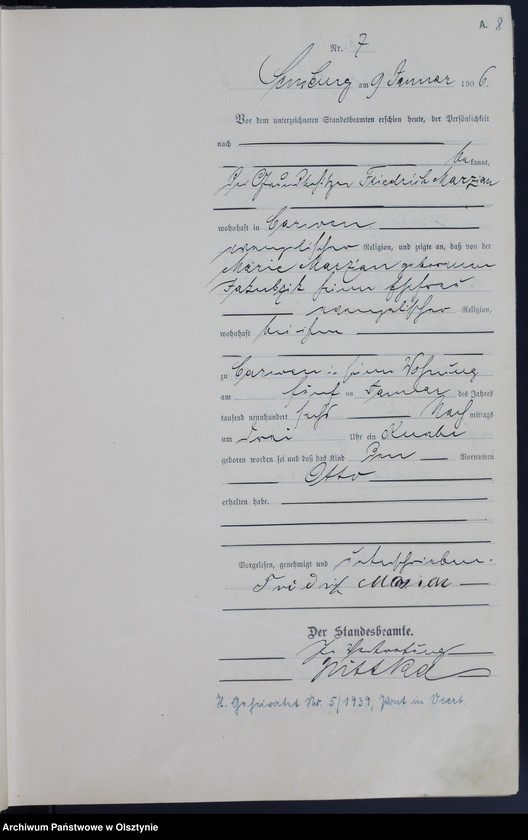 A. 8
Nr. 7
Sensburg am 9 Januar 1906.
Vor dem unterzeichneten Standesbeamten erschien heute, der Persönlichkeit
nach
bekannt,
der Grundbesitzer Friedrich Marzian
wohnhaft in Carwen
evangelischer Religion, und zeigte an, daß von der
Marie Marzian geborenen
Jakubzik seiner Ehefrau
evangelischer Religion,
wohnhaft bei ihm
zu Carwen in seiner Wohnung
am fünf ten Januar des Jahres
tausend neunhundert sechs Nachmittags
um drei Uhr ein Knabe
geboren worden sei und daß das Kind den Vornamen
Otto
erhalten habe.
Vorgelesen, genehmigt und unterschrieben.
Fridrich Marzian
Der Standesbeamte.
In Vertretung
Wittka
H. Geheiratet Nr. 5/1939,
Archiwum Państwowe w Olsztynie